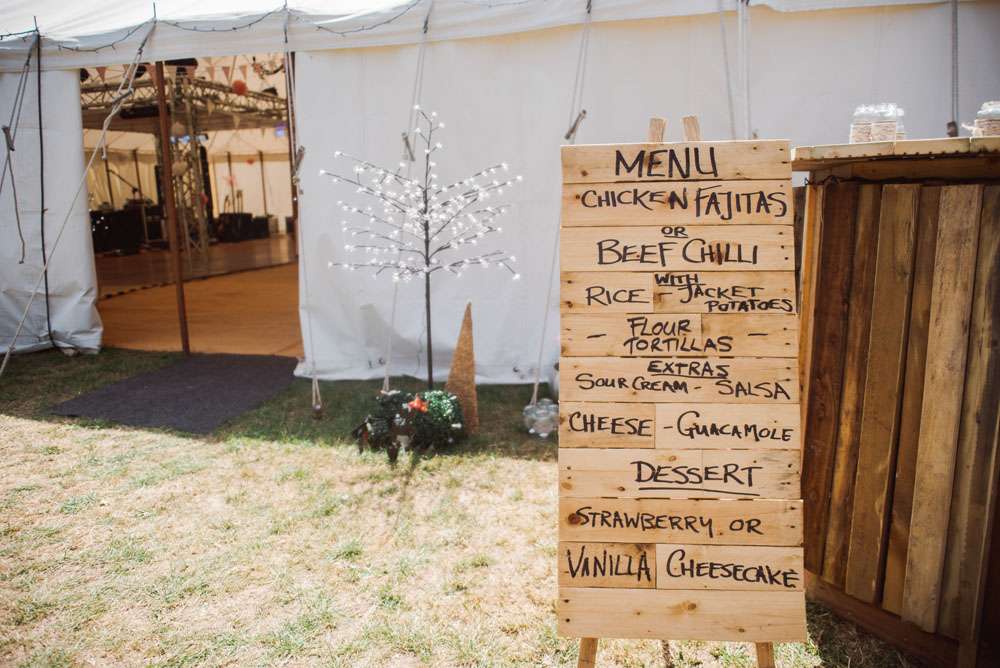 MENU
CHICKEN FAJITAS
OR
BEEF CHILLI
WITH
RICE - JACKET POTATOES
- FLOUR TORTILLAS -
EXTRAS
SOUR CREAM - SALSA
CHEESE - GUACAMOLE
DESSERT
STRAWBERRY OR
VANILLA CHEESECAKE